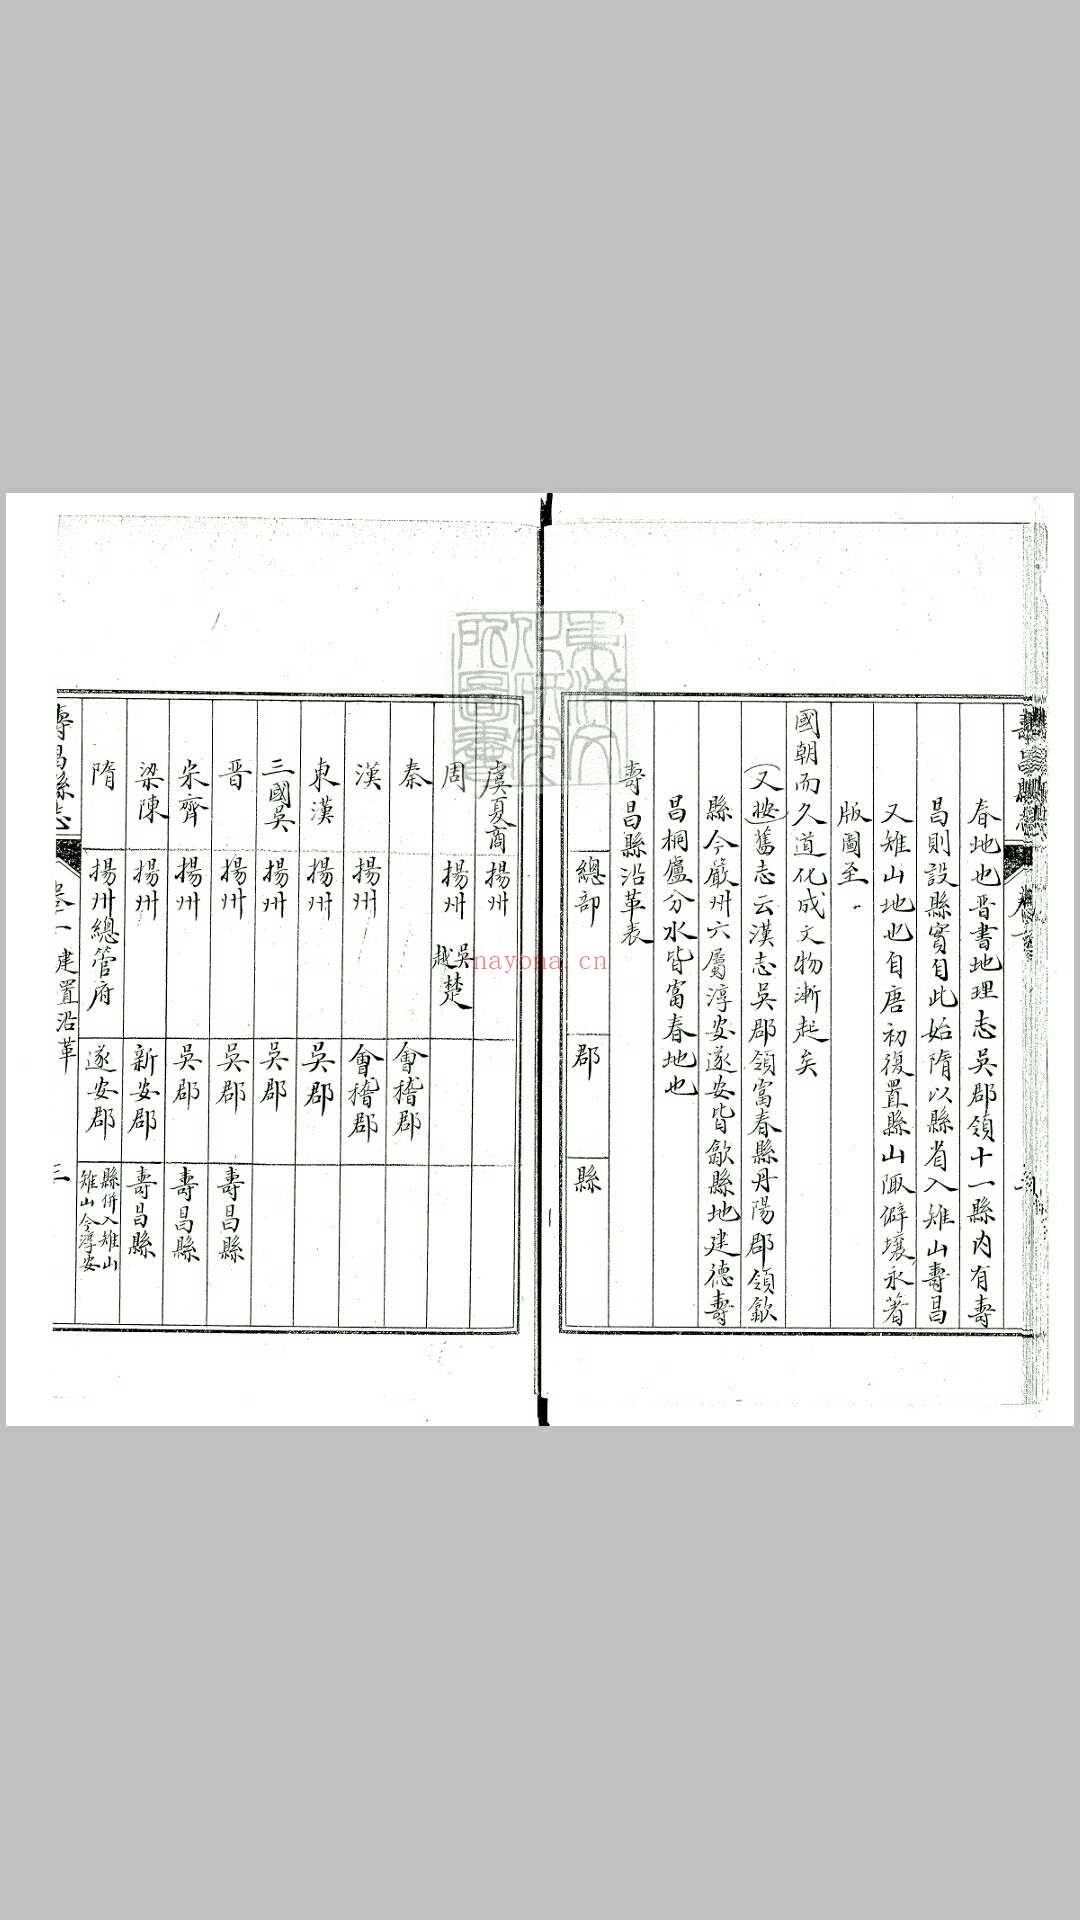 春地也晋書地理志吳郡領十一縣内有壽
昌則設縣實自此始隋以縣省入雉山壽昌
又雉山地也自唐初復置縣山陬僻壤永著
版圖至
國朝而久道化成文物漸起矣
(又按)舊志云漢志吳郡領富春縣丹陽郡領歙
縣今嚴州六屬淳安遂安皆歙縣地建德壽
昌桐廬分水皆富春地也
壽昌縣沿革表
總部 郡 縣
虞夏商 揚州
周 揚州 吳越楚
秦 會稽郡
漢 揚州 會稽郡
東漢 揚州 吳郡
三國吳 揚州 吳郡
晋 揚州 吳郡 壽昌縣
宋齊 揚州 吳郡 壽昌縣
梁陳 揚州 新安郡 壽昌縣
隋 揚州總管府 遂安郡 縣併入雉山雉山今淳安
壽昌縣志 卷一 建置沿革 三
nayona.cn